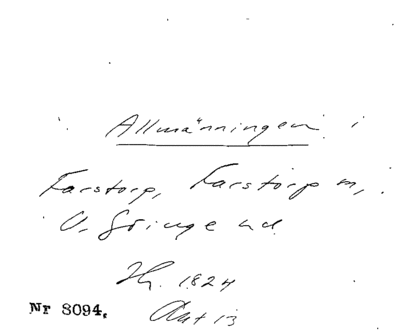 Allmänningen i
Farstorp, Farstorp sn,
V. Göinge hd
Hg. 1824
Akt 13
Nr 8094.